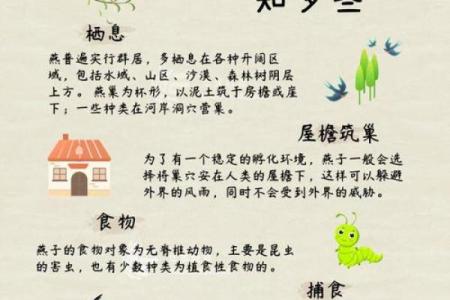 知多些
栖息
燕普遍实行群居，多栖息在各种开阔区
域，包括水域、山区、沙漠、森林树阴层
上方。燕巢为杯形，以泥土筑于房檐或崖
下；一些种类在河岸洞穴营巢。
屋檐筑巢
为了有一个稳定的孵化环境，燕子一般会选
择将巢穴安在人类的屋檐下，这样可以躲避
外界的风雨，同时不会受到外界的威胁。
食物
燕子的食物对象为无脊椎动物，主要是昆虫
的害虫，也有少数种类为植食性食物的。
捕食